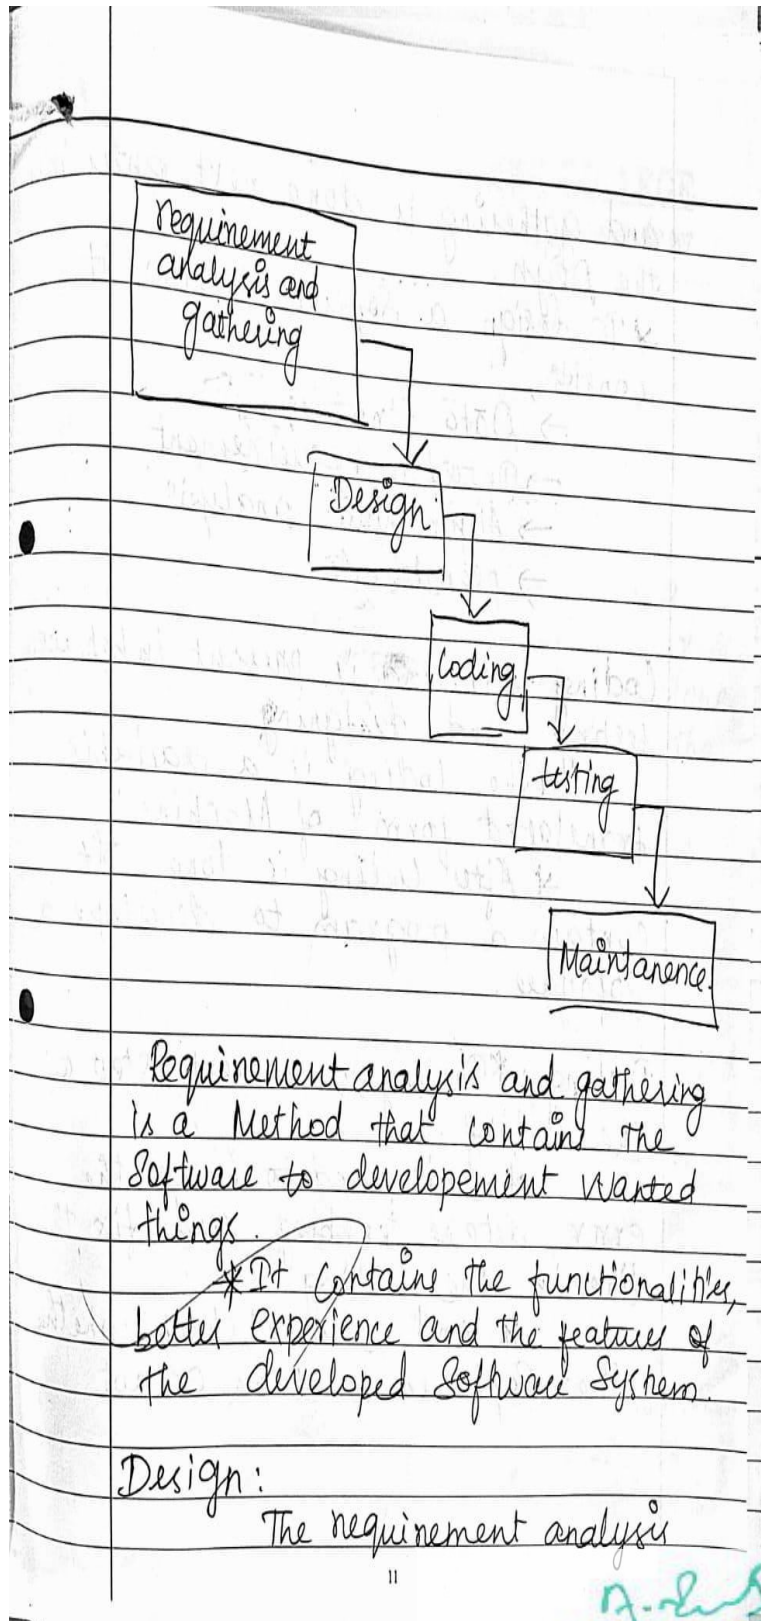 requirement
analysis and
gathering
Design
Coding
testing
Maintanence.
Requirement analysis and gathering
is a Method that contains the
Software to developement wanted
things.
*It contains the functionalities,
better experience and the features of
the developed Software System.
Design:
The requirement analysis
11